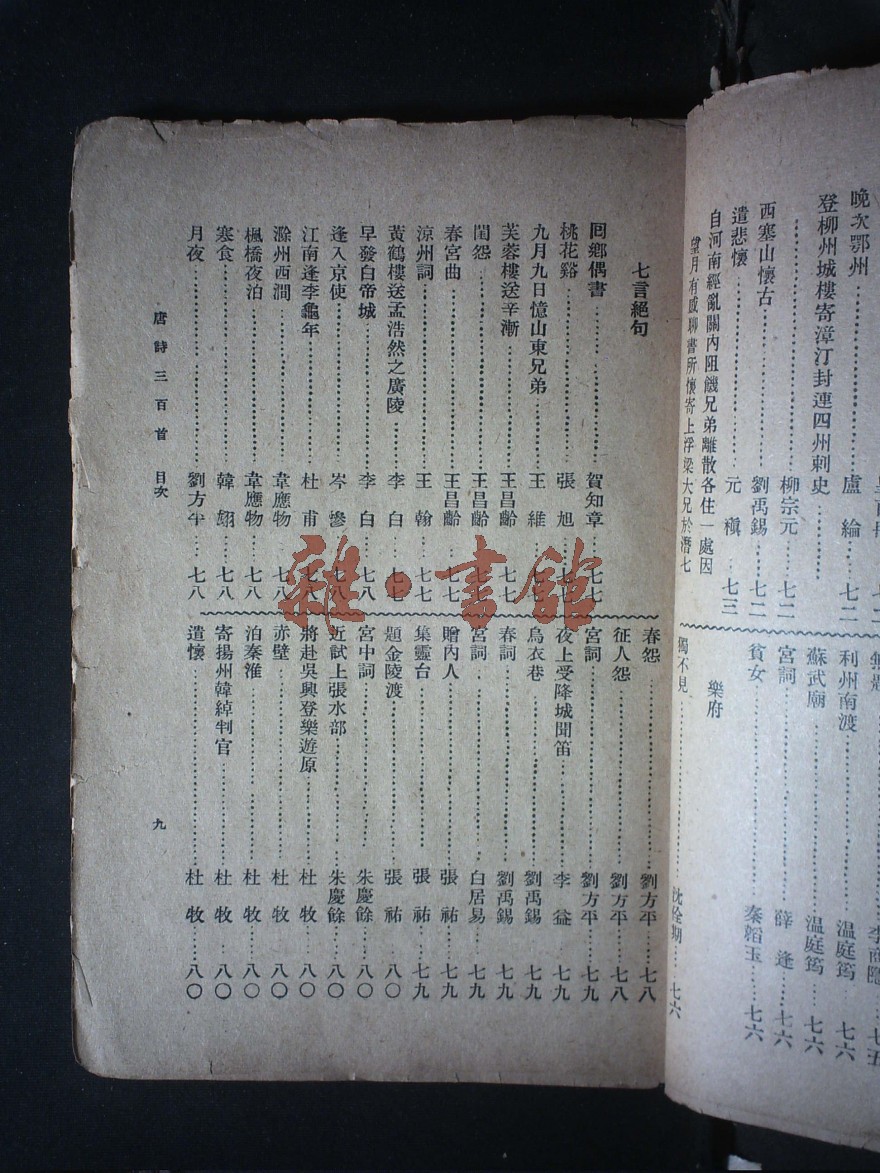 晚次鄂州……盧綸……七二
登柳州城樓寄漳汀封連四州刺史
……柳宗元……七二
西塞山懷古……劉禹錫……七二
遣悲懷……元稹……七三
自河南經亂關內阻饑兄弟離散各住一處因
望月有感聊書所懷寄上浮梁大兄於潛七
利州南渡……温庭筠……七六
蘇武廟……温庭筠……七六
宮詞……薛逢……七六
貧女……秦韜玉……七六
樂府
獨不見……沈佺期……七六
七言絕句
囘鄉偶書……賀知章……七七
桃花谿……張旭……七七
九月九日憶山東兄弟……王維……七七
芙蓉樓送辛漸……王昌齡……七七
閨怨……王昌齡……七七
春宮曲……王昌齡……七七
涼州詞……王翰……七七
黃鶴樓送孟浩然之廣陵……李白……七七
早發白帝城……李白……七八
逢入京使……岑參……七八
江南逢李龜年……杜甫……七八
滁州西澗……韋應物……七八
楓橋夜泊……韋應物……七八
寒食……韓翃……七八
月夜……劉方平……七八
春怨……劉方平……七八
征人怨……劉方平……七八
宮詞……劉方平……七九
夜上受降城聞笛……李益……七九
烏衣巷……劉禹錫……七九
春詞……劉禹錫……七九
宮詞……白居易……七九
贈內人……張祐……七九
集靈台……張祐……七九
題金陵渡……張祐……八〇
宮中詞……朱慶餘……八〇
近試上張水部……朱慶餘……八〇
將赴吳興登樂遊原……杜牧……八〇
赤壁……杜牧……八〇
泊秦淮……杜牧……八〇
寄揚州韓綽判官……杜牧……八〇
遣懷……杜牧……八〇
唐詩三百首 目次
九
雜·書館